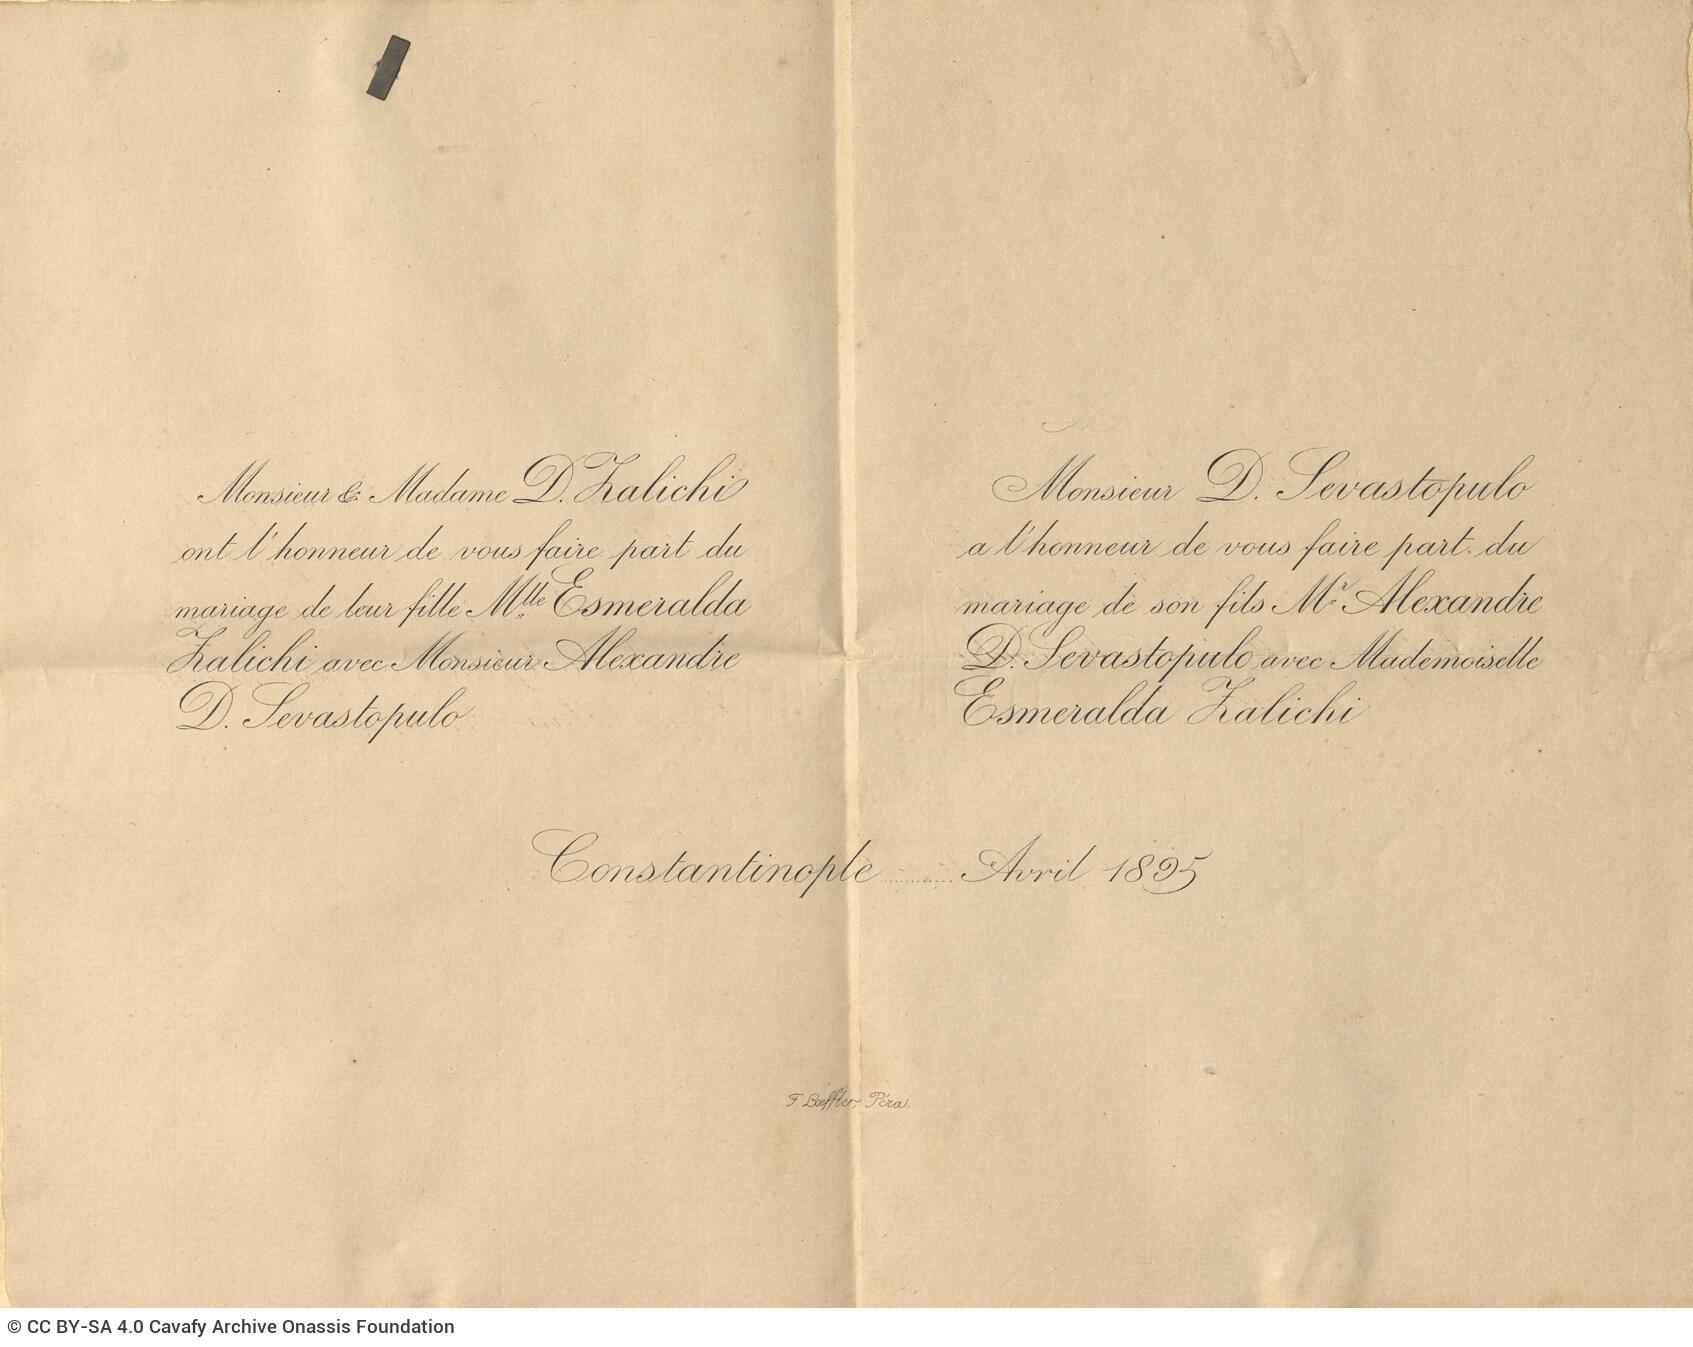 Monsieur & Madame D. Zalichi
ont l'honneur de vous faire part du
mariage de leur fille Mlle Esmeralda
Zalichi avec Monsieur Alexandre
D. Sevastopulo
Monsieur D. Sevastopulo
a l'honneur de vous faire part du
mariage de son fils Mr Alexandre
D. Sevastopulo avec Mademoiselle
Esmeralda Zalichi
Constantinople ........ Avril 1895
F. Lœffler, Péra.
© CC BY-SA 4.0 Cavafy Archive Onassis Foundation